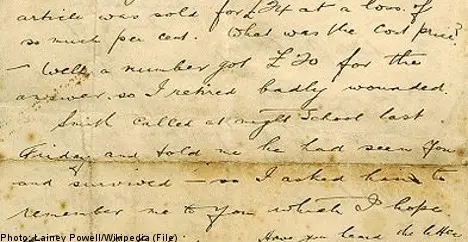 article was sold for £24 at a loss of
so much per cent. What was the cost price?
– Well a number got £70 for the
answer, so I retired badly wounded.
Smith called at night school last
Friday and told me he had seen you
and survived – so I asked him to
remember me to you which I hope
Have you heard the latter
Photo: Lainey Powell/Wikipedia (File)